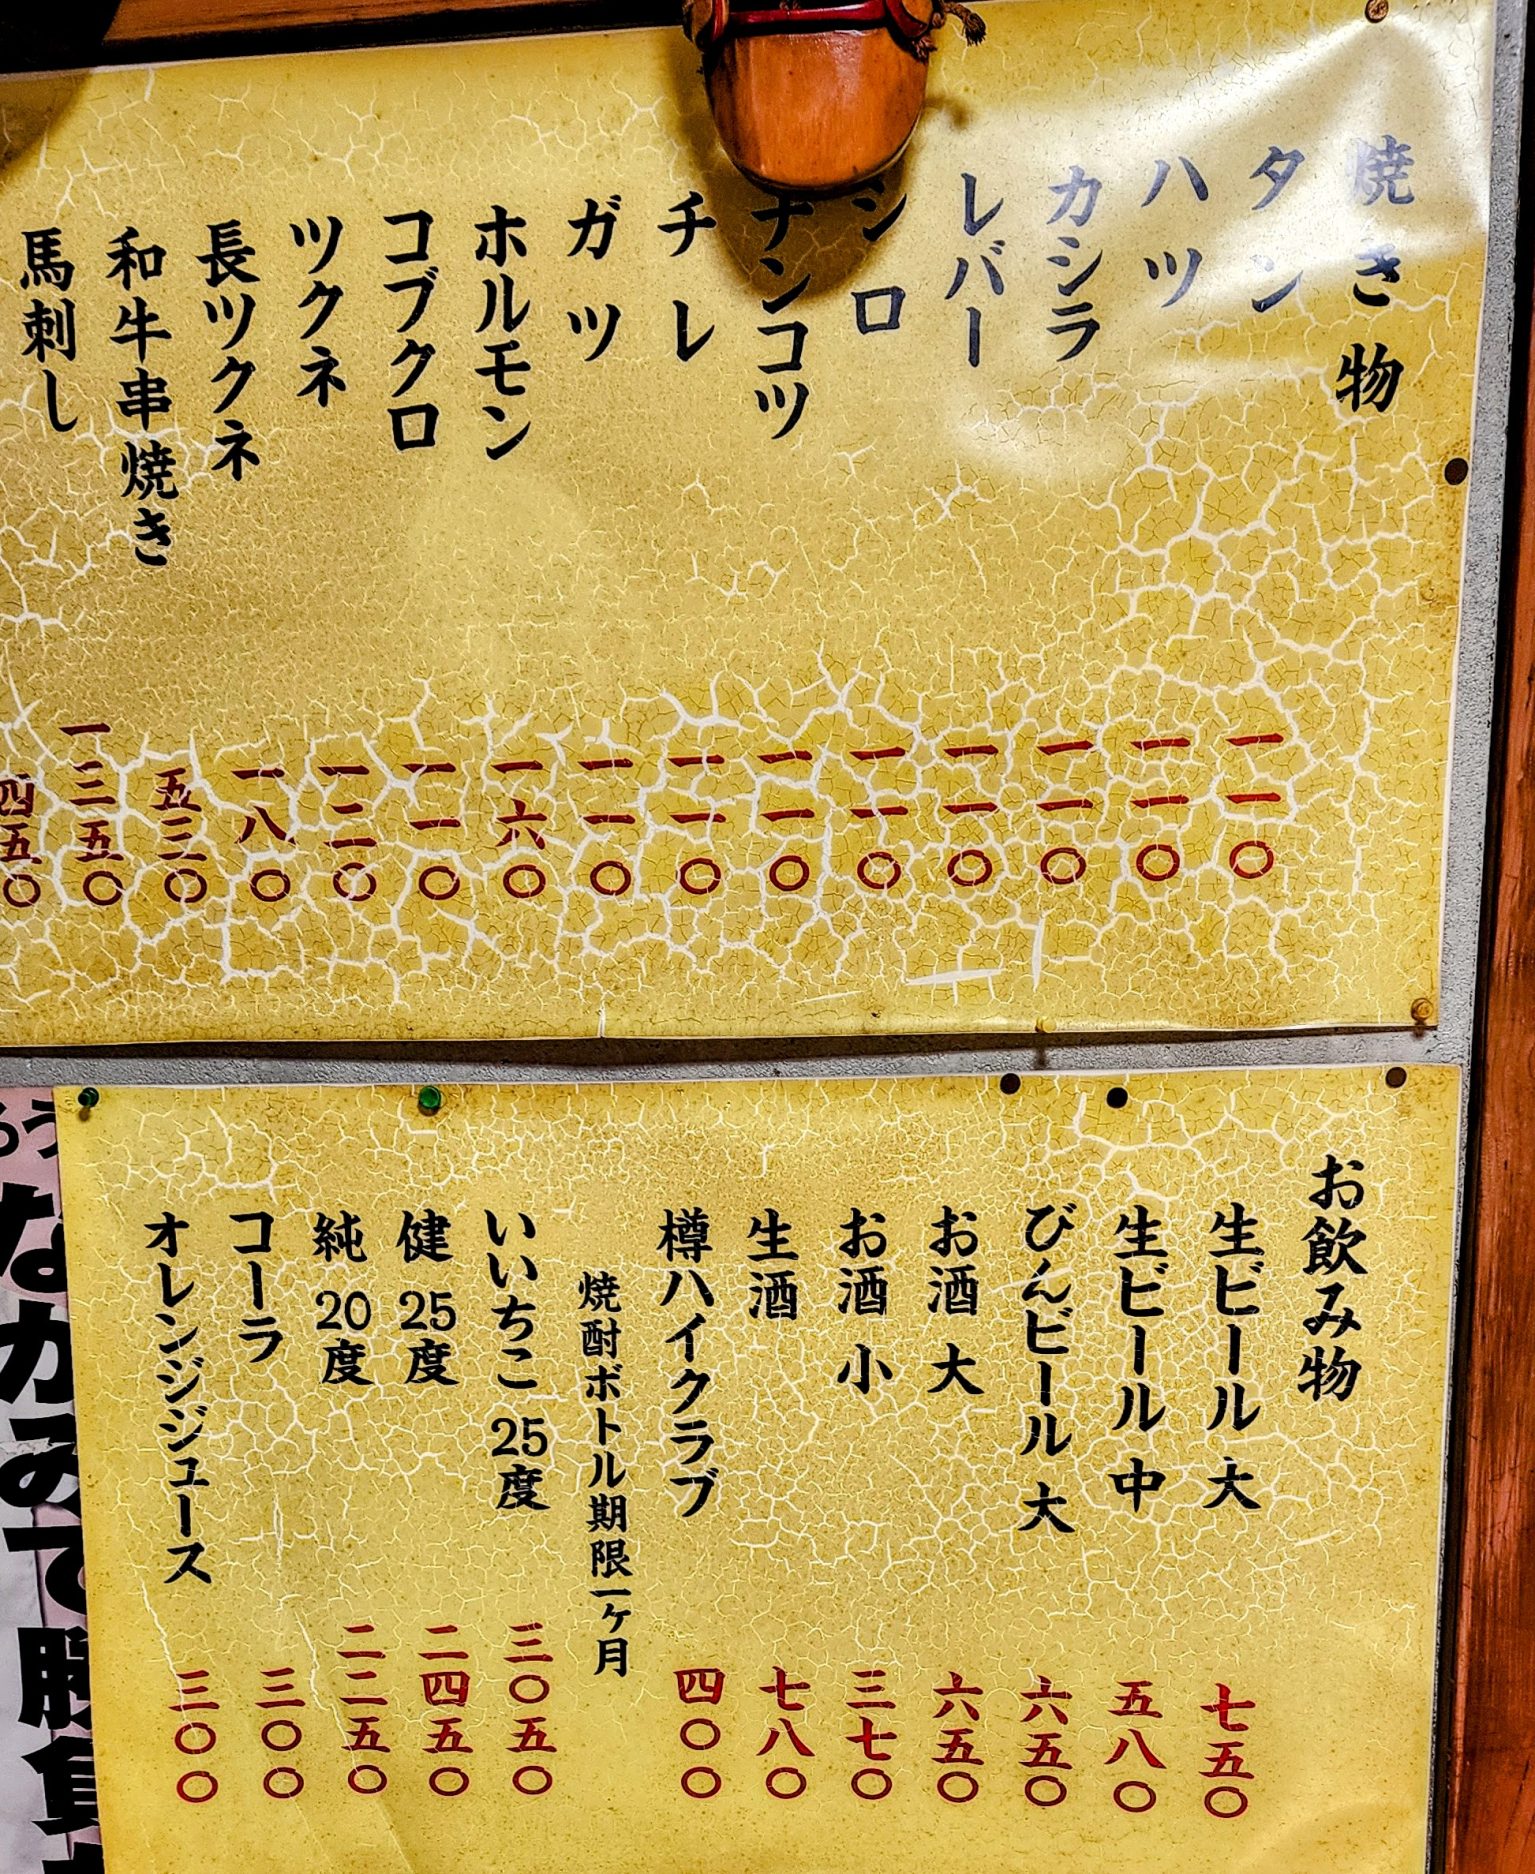 焼き物
タン 一一〇
ハツ 一一〇
カシラ 一一〇
レバー 一一〇
シロ 一一〇
ナンコツ 一一〇
チレ 一一〇
ガツ 一一〇
ホルモン 一六〇
コブクロ 一一〇
ツクネ 一二〇
長ツクネ 一八〇
和牛串焼き 五三〇
馬刺し 一三五〇
四五〇
お飲み物
生ビール 大 七五〇
生ビール 中 五八〇
びんビール 大 六五〇
お酒 大 六五〇
お酒 小 三七〇
生酒 七八〇
樽ハイクラブ 四〇〇
焼酎ボトル期限一ケ月
いいちこ 25度 三〇五〇
健 25度 二四五〇
純 20度 二二五〇
コーラ 三〇〇
オレンジジュース 三〇〇
なかみで勝負